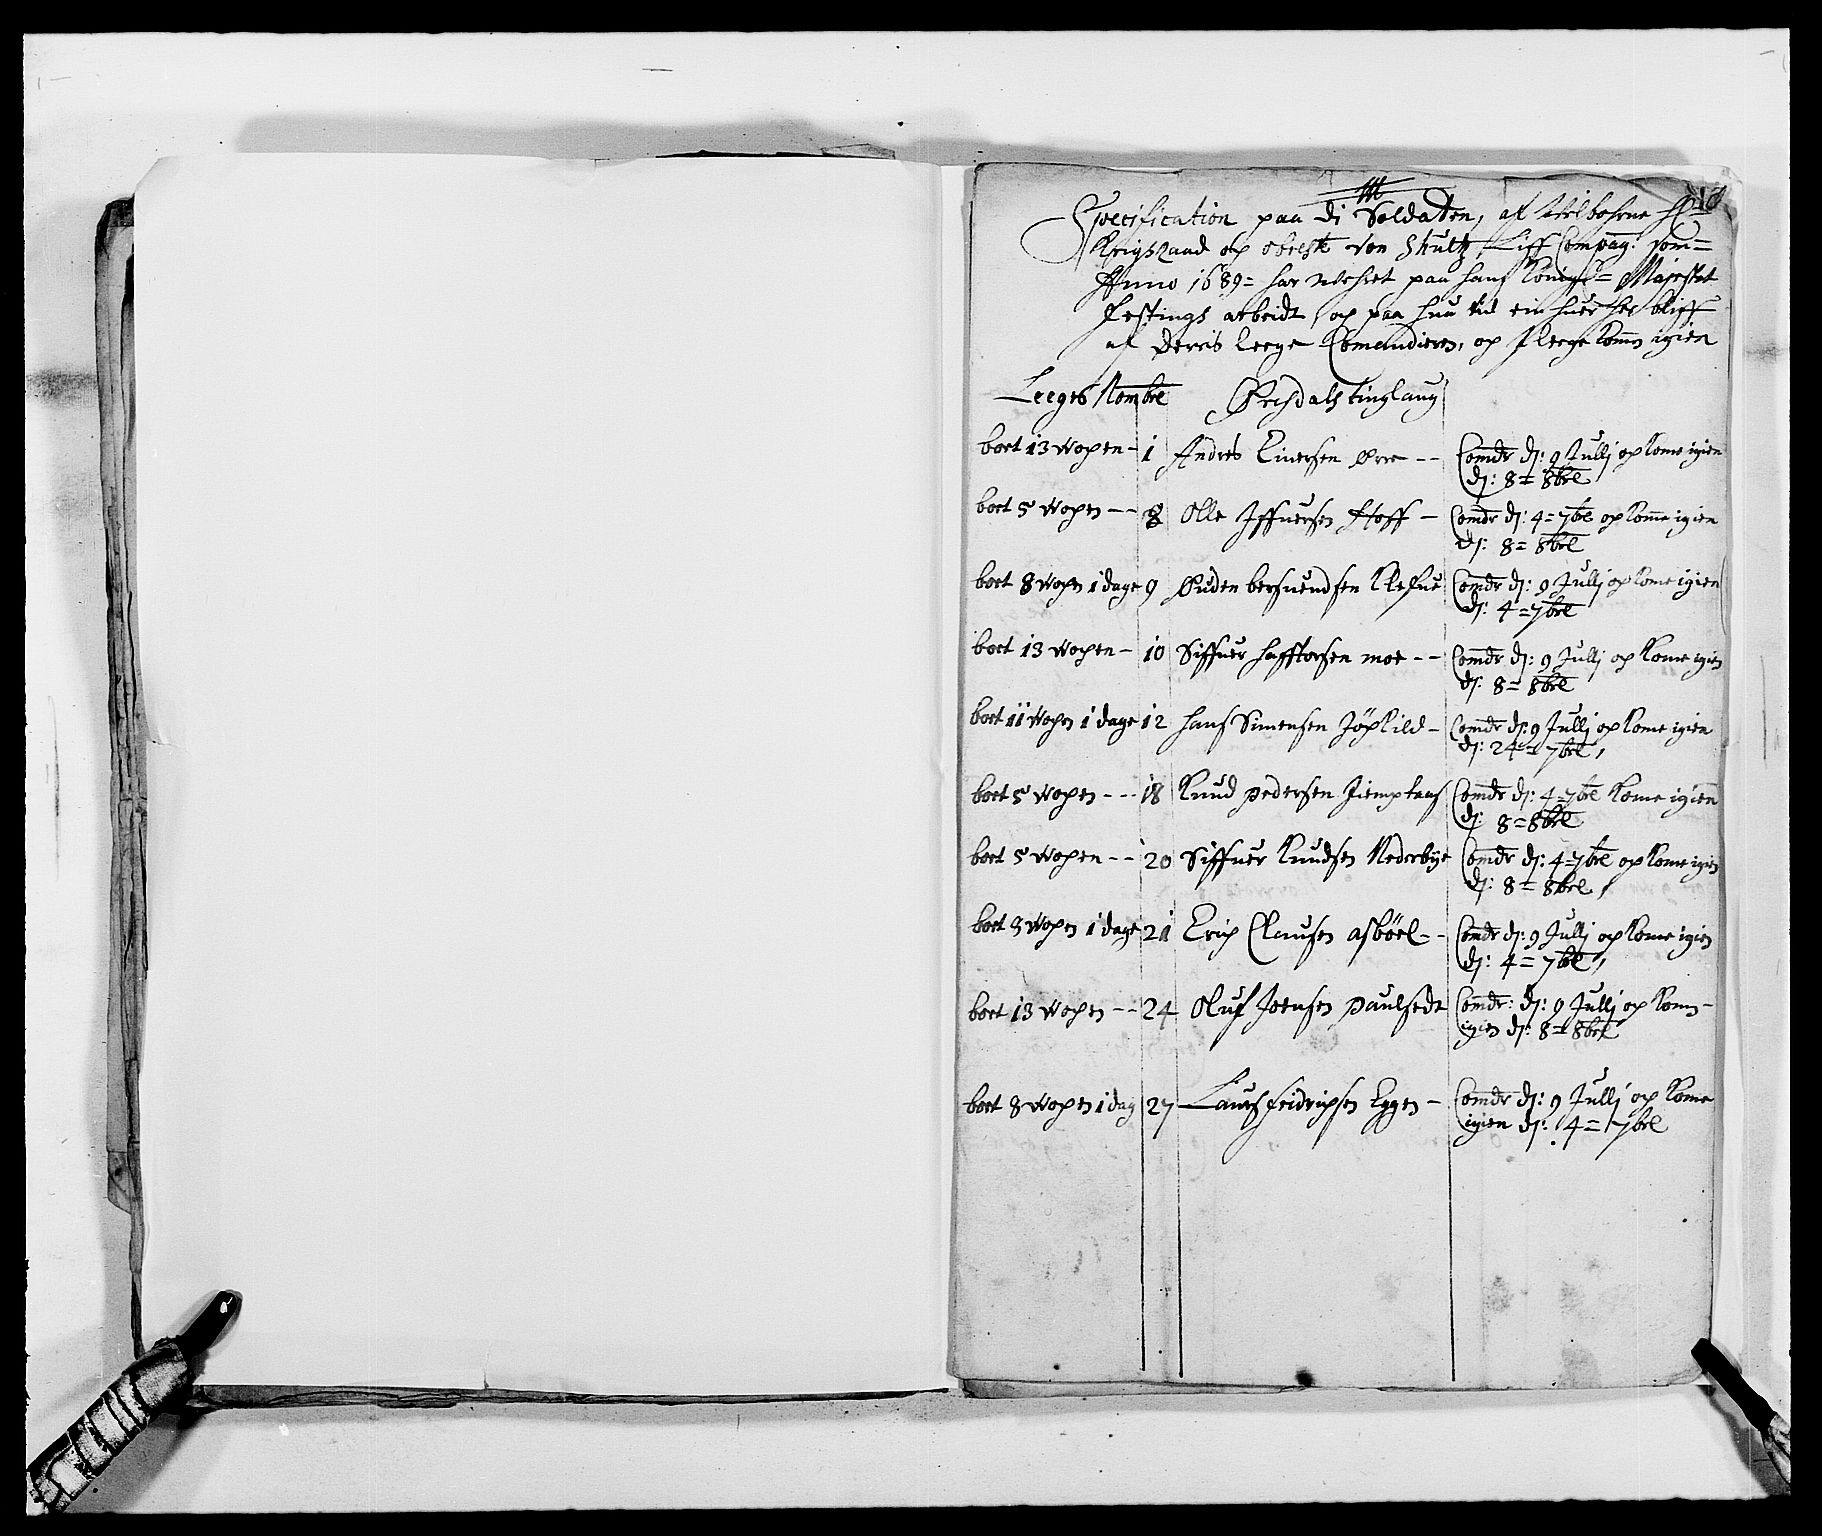 Specification paa di Soldaten, af Welbohrne H:
Krigsraad og obreste von Shultz Liff Compag: som=
Anno 1689= har werhet paa hans Konigl= Majestet
festings arbeidt, og paa hua tid ein huer her bleff
af Derris leege Comendieren, og I leege komen igien
Leeges Nombre Ørchdals tinglaug
boet 13 wogen - 1 Andres Einersen Øree - - Comdr dj: 9 Jullj og kome igien
dj: 8= 8brl
boet 5 wogen - - 8 Olle Iffuersen Hoff - Comdr dj: 4= 7brl og kome igien
dj: 8= 8brl
boet 8 wogen 1 dage 9 Øuden bersuendsen Klefue Comdr dj: 9 Jullj og kome igien
dj: 4= 7brl
boet 13 wogen - 10 Siffuer hafftorsen moe - - Comdr dj: 9 Jullj og kome igien
dj: 8= 8brl
boet 11 wogen 1 dage 12 hans Simensen Jöskild - Comdr dj: 9 Jullj og kome igien
dj: 24= 7brl,
boet 5 wogen - - - 18 Knud Pedersen Comdr dj: 4= 7brl kome igien
dj: 8= 8brl
boet 5 wogen - - 20 Siffuer Knudsen Nederbye Comdr dj: 4= 7brl og kome igien
dj: 8= 8brl,
boet 8 wogen 1 dage 21 Erig Clausen asböel - - Comdr dj: 9 Jullj og kome igien
dj: 4= 7brl,
boet 13 wogen - - 24 Oluf Joensen Paulsedt Comdr: dj: 9 Jullj og kom-
igien dj: 8= 8brl
boet 8 wogen 1 dag 27 Laurs feidrigsen Eggen - Comdr dj: 9 Jullj og kome
igien dj: 4= 7brl